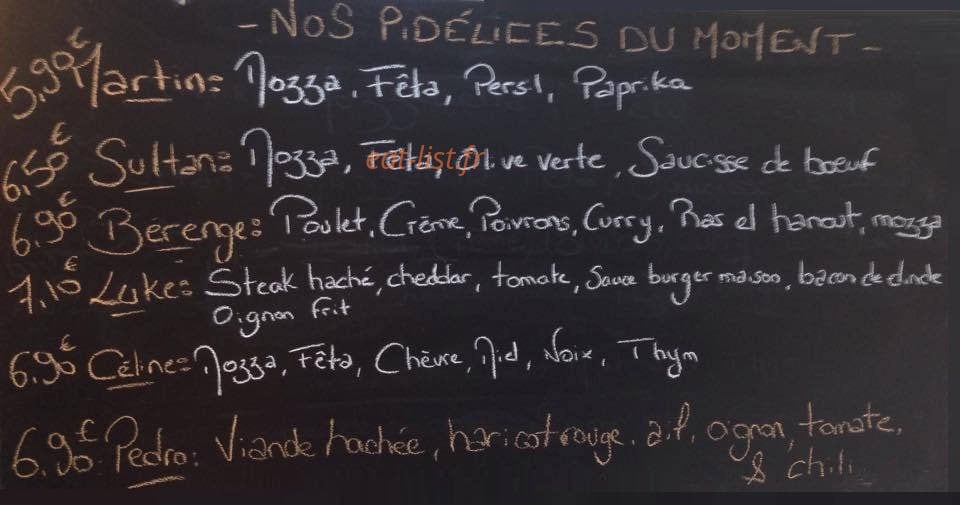 - NOS PIDÉLICES DU MOMENT -
5,90€ Martin: Mozza, Fêta, Persil, Paprika
6,50€ Sultan: Mozza, Fêta, Olive verte, Saucisse de boeuf
eat-list.fr
6,90€ Bérenge: Poulet, Crème, Poivrons, Curry, Ras el hanout, mozza
7,10€ Luke: Steak haché, cheddar, tomate, Sauce burger maison, bacon de dinde
Oignon frit
6,90€ Céline: Mozza, Fêta, Chèvre, Mid, Noix, Thym
6,90£ Pedro: Viande hachée, haricot rouge, ail, oignon, tomate,
& chili